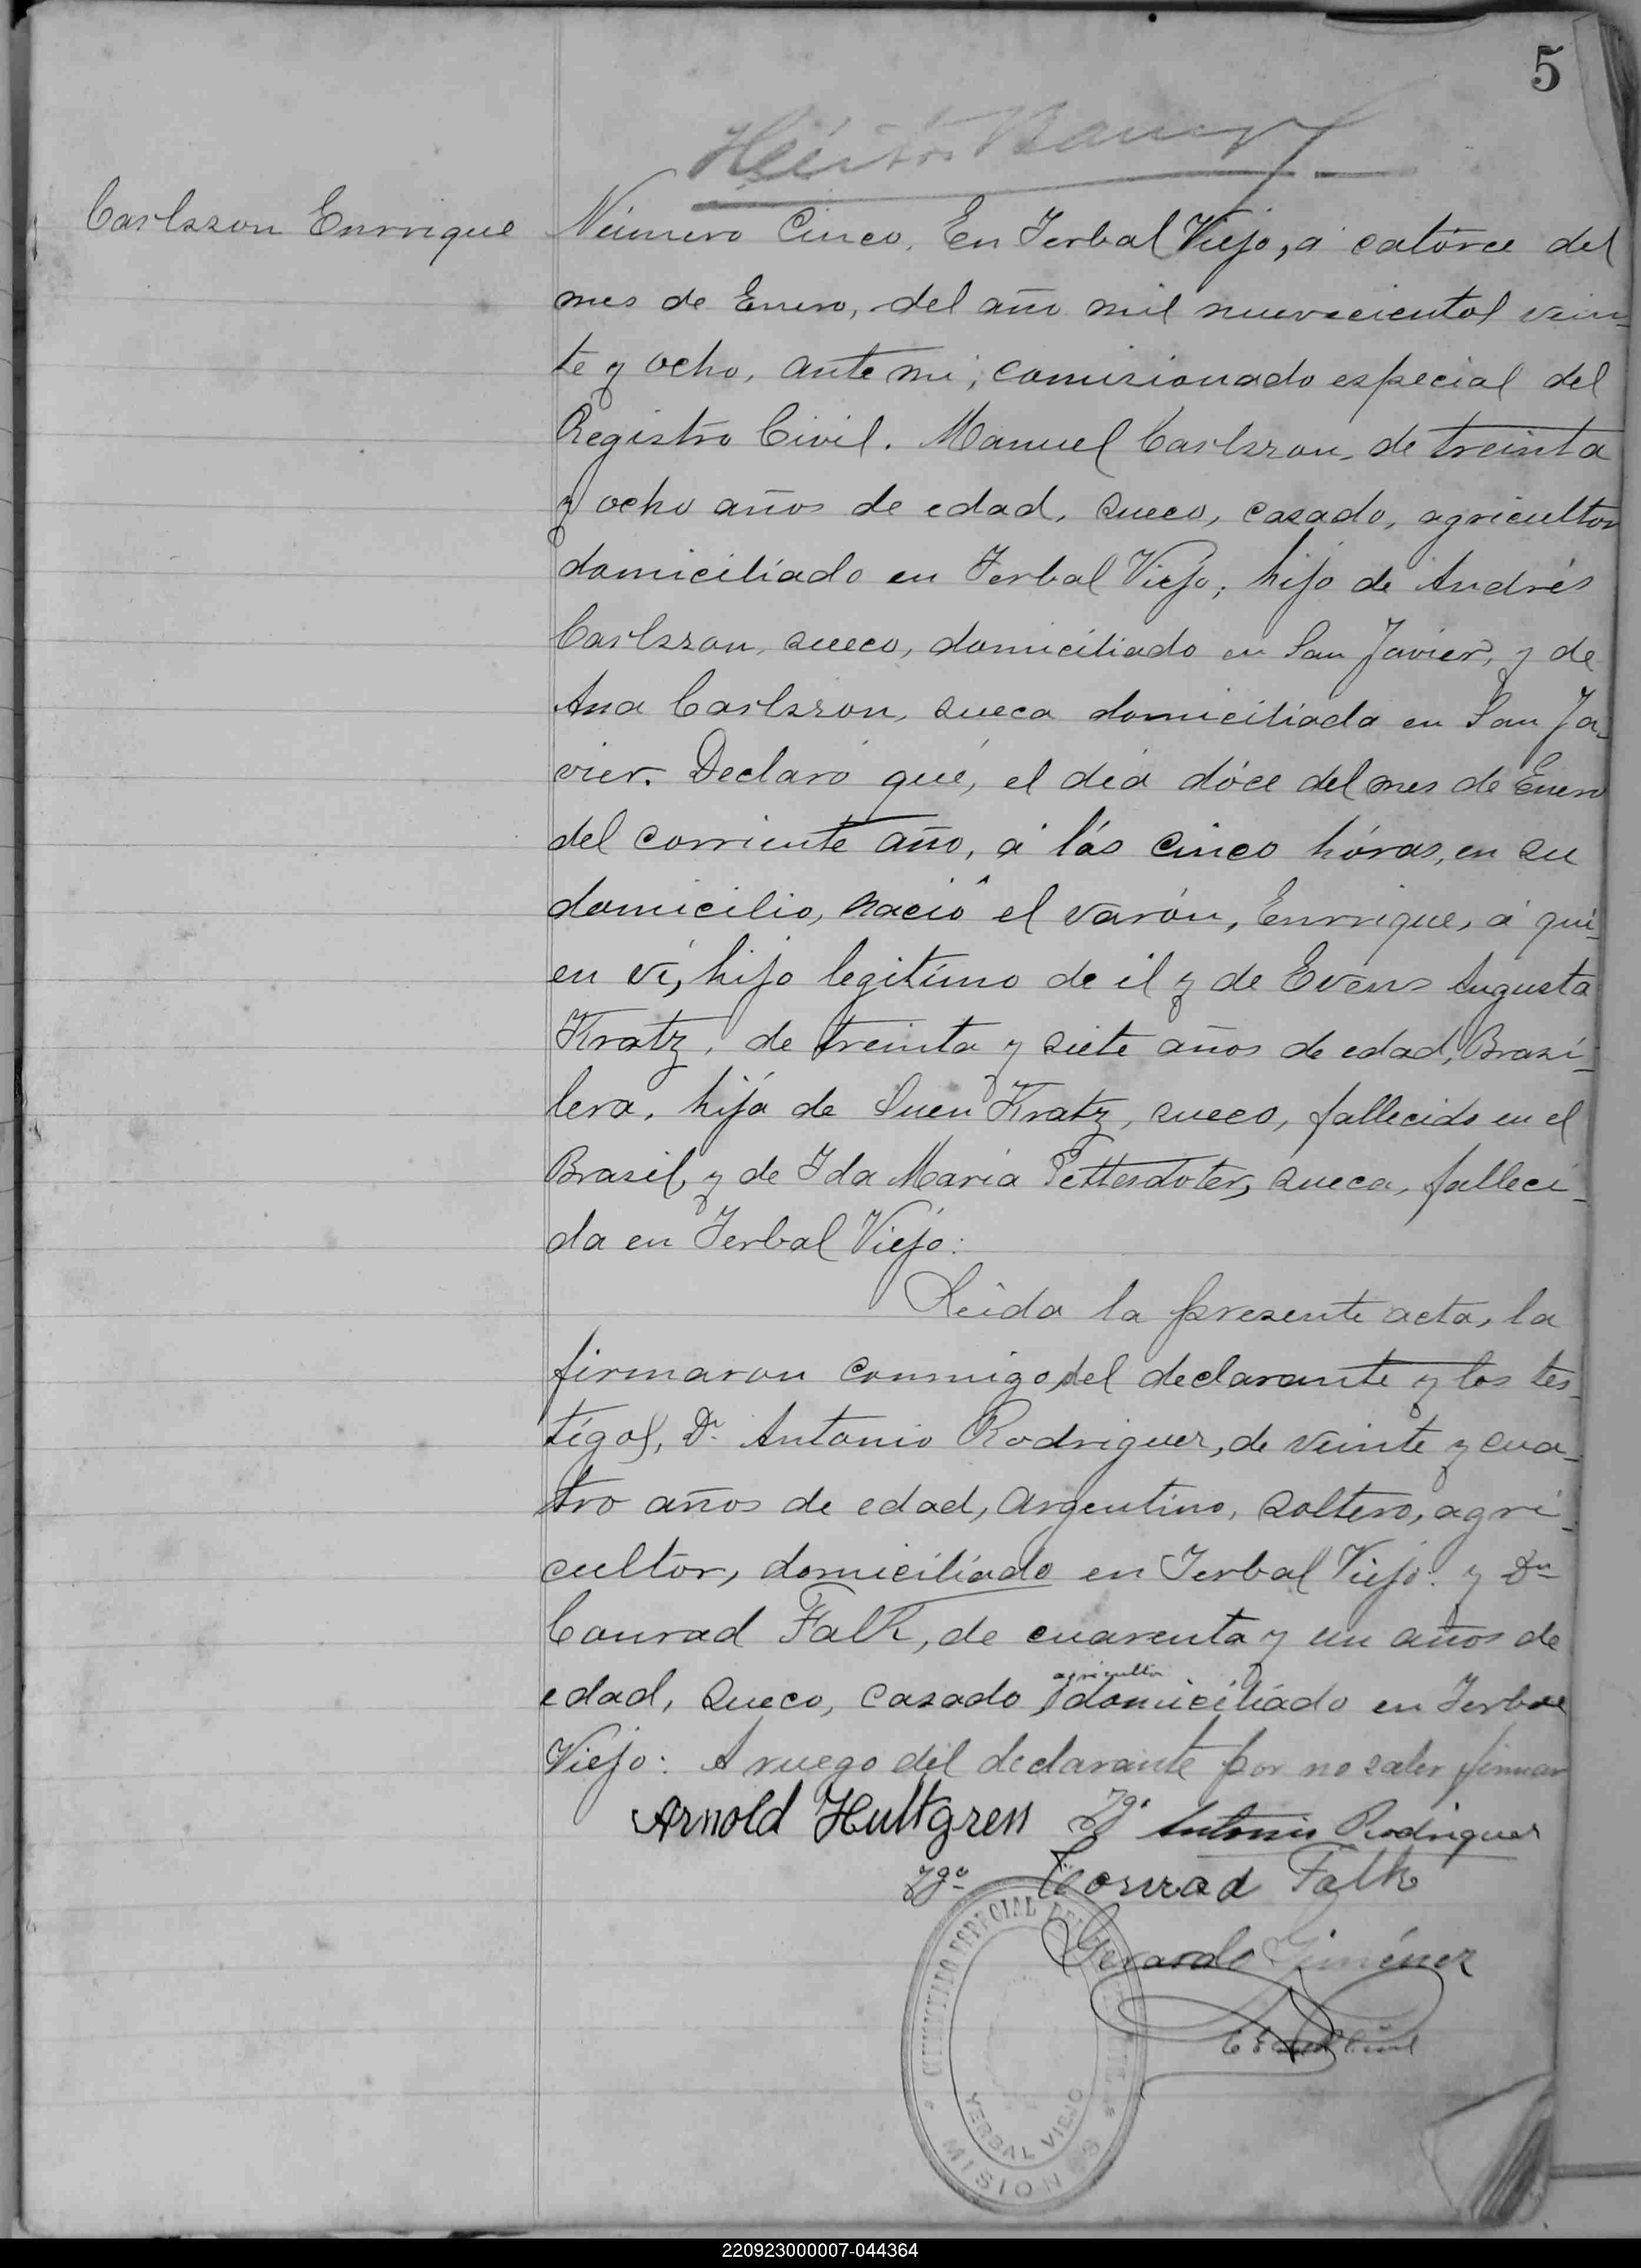 5
Carlsson Enrrique
Número Cinco. En Yerbal Viejo, á catórce del
mes de Enero, del año mil nuevecientos vein-
te y ocho, ante mi, comisionado especial del
Registro Civil. Manuel Carlsson, de treinta
y ocho años de edad, sueco, casado, agricultor
domiciliado en Yerbal Viejo, hijo de Andrés
Carlsson, sueco, domiciliado en San Javier, y de
Ana Carlsson, sueca domiciliada en San Ja-
vier. Declaró qué, el día dóce del mes de Enero
del corriente año, á lás cinco hóras, en su
domicilio, nació el varón, Enrrique, á qui-
en ví, hijo legitímo de él y de Evens Augusta
Kratz, de treinta y siete años de edad, Brasi-
lera, hijá de Suen Kratz, sueco, fallecido en el
Brasil, y de Ida María Pettersdoter, sueca, falleci-
da en Yerbal Viejo:
Leida la presente acta, la
firmaron conmigo, del declarante y los tes-
tígos, Dn Antonio Rodriguez, de veinte y cua-
tro años de edad, Argentino, soltero, agri-
cultor, domiciliádo en Yerbal Viejo. y Dn
Conrad Falk, de cuarenta y un años de
agricultor
edad, sueco, casado, domiciliádo en Yerbal
Viejo: A ruego del declarante por no saber firmar
Arnold Hultgren Tgo Antonio Rodriguez
Tgo Conrad Falk
Gerardo Giménez
YERBAL VIEJO
MISIONES
220923000007-044364